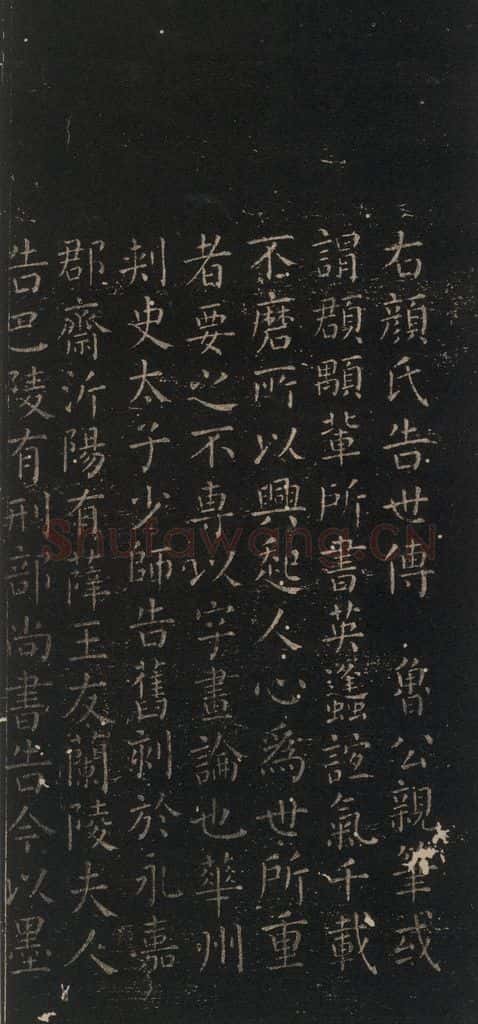 右顔氏告世傳 魯公親筆或
謂頵顒輩所書英蠭誼氣千載
不磨所以興起人心爲世所重
者要之不專以字畫論也華州
刺史太子少師告舊刻於永嘉
郡齋沂陽有薛王友蘭陵夫人
告巴陵有刑部尚書告今以墨
Shufawang.CN